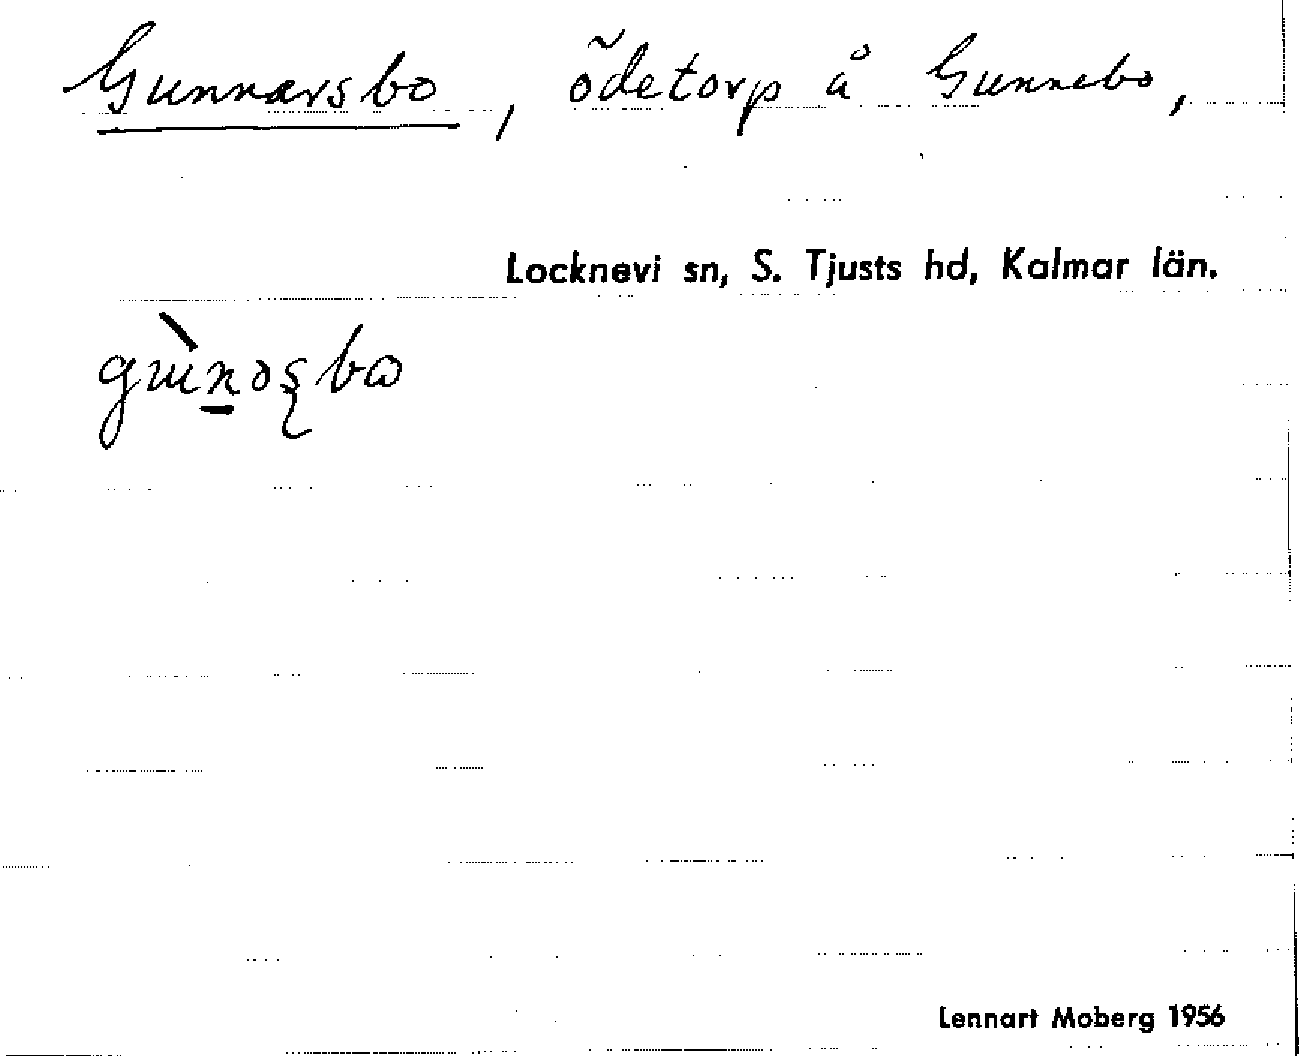 Gunnarsbo, ödetorp å Gunnebo,
Locknevi sn, S. Tjusts hd, Kalmar län.
Lennart Moberg 1956